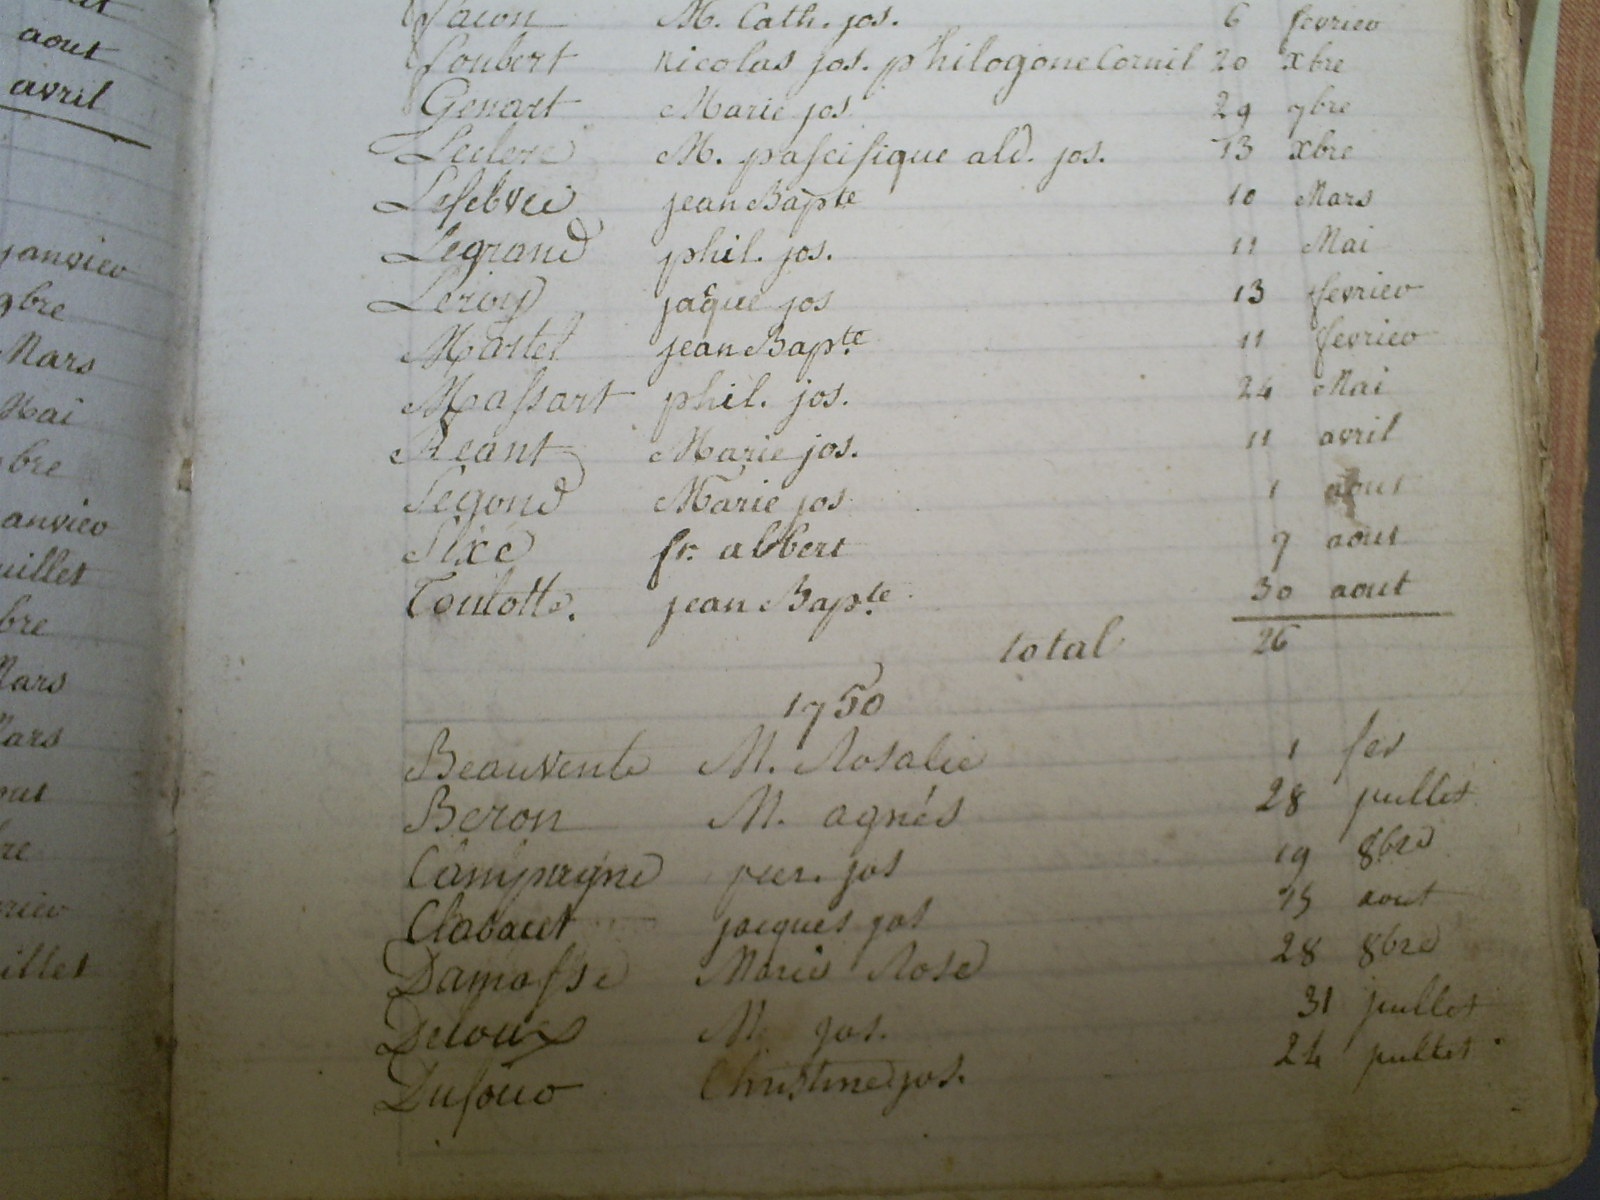 aout
avril
janvier
9bre
Mars
Mai
bre
janvier
juillet
bre
Mars
Mars
out
bre
vrier
juillet
Facon M. Cath. jos. 6 fevrier
Foubert nicolas jos. philogone Cornil 20 xbre
Genart Marie jos 29 7bre
Leclerc M. pascifique ald. jos. 13 xbre
Lefebvre jean Bapte 10 Mars
Legrand phil. jos. 11 Mai
Leroy jaque jos 13 fevrier
Martel jean Bapte 11 fevrier
Massart phil. jos. 24 Mai
Reant Marie jos. 11 avril
Segond Marie jos 1 aout
Sixe fr. albert 7 aout
Toulotte. jean Bapte 30 aout
total 26
1750
Beauvente M. Rosalie 1 fev
Beron M. agnés 28 juillet
Campagne pier. jos 19 8bre
Clabaut jacques jos 15 aout
Damasse Marie Rose 28 8bre
M. jos. 31 juillet
Dufour Christine jos. 24 juillet